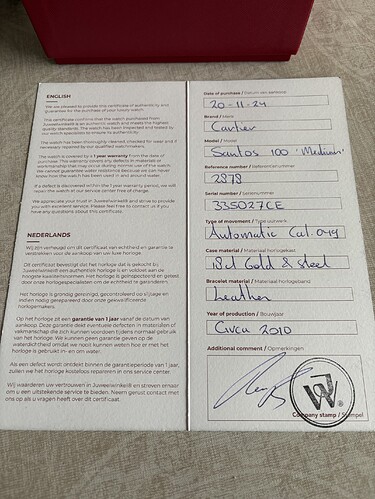 ENGLISH
We are pleased to provide this certificate of authenticity and
guarantee for the purchase of your luxury watch.
This certificate confirms that the watch purchased from
Juweelwinkel® is an authentic watch and meets the highest
quality standards. The watch has been inspected and tested by
our watch specialists to ensure its authenticity.
The watch has been thoroughly cleaned, checked for wear and if
necessary repaired by our qualified watchmakers.
The watch is covered by a 1 year warranty from the date of
purchase. This warranty covers any defects in materials or
workmanship that may occur during normal use of the watch.
We cannot guarantee water resistance because we can never
know how the watch has been used in and around water.
If a defect is discovered within the 1 year warranty period, we will
repair the watch at our service center free of charge.
We appreciate your trust in Juweelwinkel® and strive to provide
you with excellent service. Please feel free to contact us if you
have any questions about this certificate.
NEDERLANDS
Wij zijn verheugd om dit certificaat van echtheid en garantie te
verstrekken voor de aankoop van uw luxe horloge.
Dit certificaat bevestigt dat het horloge dat is gekocht bij
Juweelwinkel® een authentiek horloge is en voldoet aan de
hoogste kwaliteitsnormen. Het horloge is geïnspecteerd en getest
door onze horlogespecialisten om de echtheid te garanderen.
Het horloge is grondig gereinigd, gecontroleerd op slijtage en
indien nodig gerepareerd door onze gekwalificeerde
horlogemakers.
Op het horloge zit een garantie van 1 jaar vanaf de datum van
aankoop. Deze garantie dekt eventuele defecten in materialen of
vakmanschap die zich kunnen voordoen tijdens normaal gebruik
van het horloge. Wij kunnen geen garantie geven op de
waterdichtheid omdat we nooit kunnen weten hoe er met het
horloge is gebruikt in- en om water.
Als een defect wordt ontdekt binnen de garantieperiode van 1 jaar,
zullen we het horloge kosteloos repareren in ons service center.
Wij waarderen uw vertrouwen in Juweelwinkel® en streven ernaar
om u een uitstekende service te bieden. Neem gerust contact met
ons op als u vragen heeft over dit certificaat.
Date of purchase / Datum van aankoop
20-11-24
Brand / Merk
Cartier
Model / Model
Santos 100 'Medium'
Reference number / Referentienummer
2878
Serial number / Serienummer
335027CE
Type of movement / Type uurwerk
Automatic Cal. 049
Case material / Materiaal horlogekast
18ct Gold & Steel
Bracelet material / Materiaal horlogeband
Leather
Year of production / Bouwjaar
Circa 2010
Additional comment / Opmerkingen
W®
Company stamp / Stempel